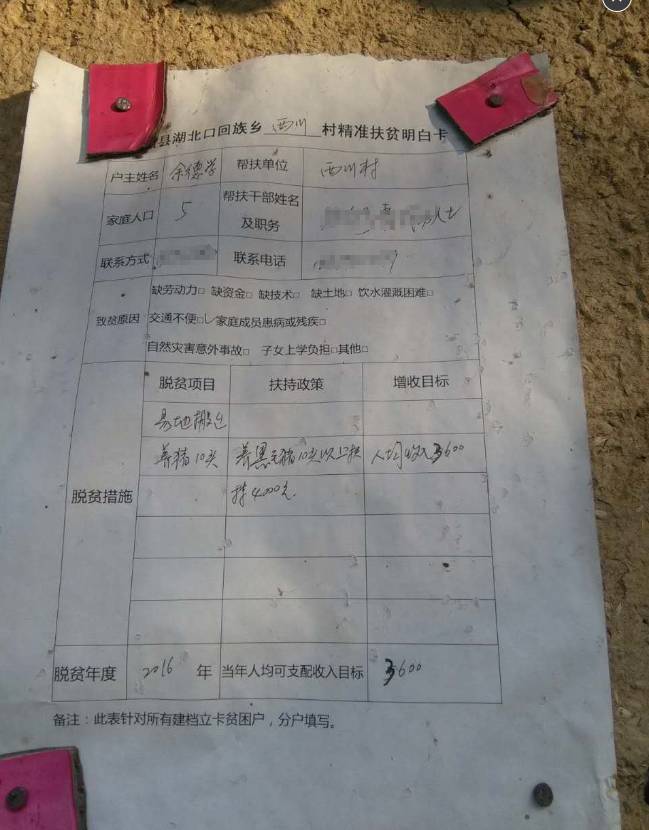 县湖北口回族乡 西川 村精准扶贫明白卡
户主姓名 余德学 帮扶单位 西川村
家庭人口 5 帮扶干部姓名及职务
联系方式 联系电话
致贫原因 缺劳动力□ 缺资金□ 缺技术□ 缺土地□ 饮水灌溉困难□
交通不便□✓家庭成员患病或残疾□
自然灾害意外事故□ 子女上学负担□其他□
脱贫措施 脱贫项目 扶持政策 增收目标
易地搬迁
养猪10头 养黑毛猪10头以上扶持4000元. 人均收入3600
脱贫年度 2016 年 当年人均可支配收入目标 3600
备注：此表针对所有建档立卡贫困户，分户填写。